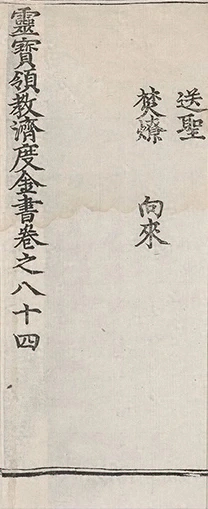 送聖
焚燎　向來
靈寶領教濟度金書卷之八十四